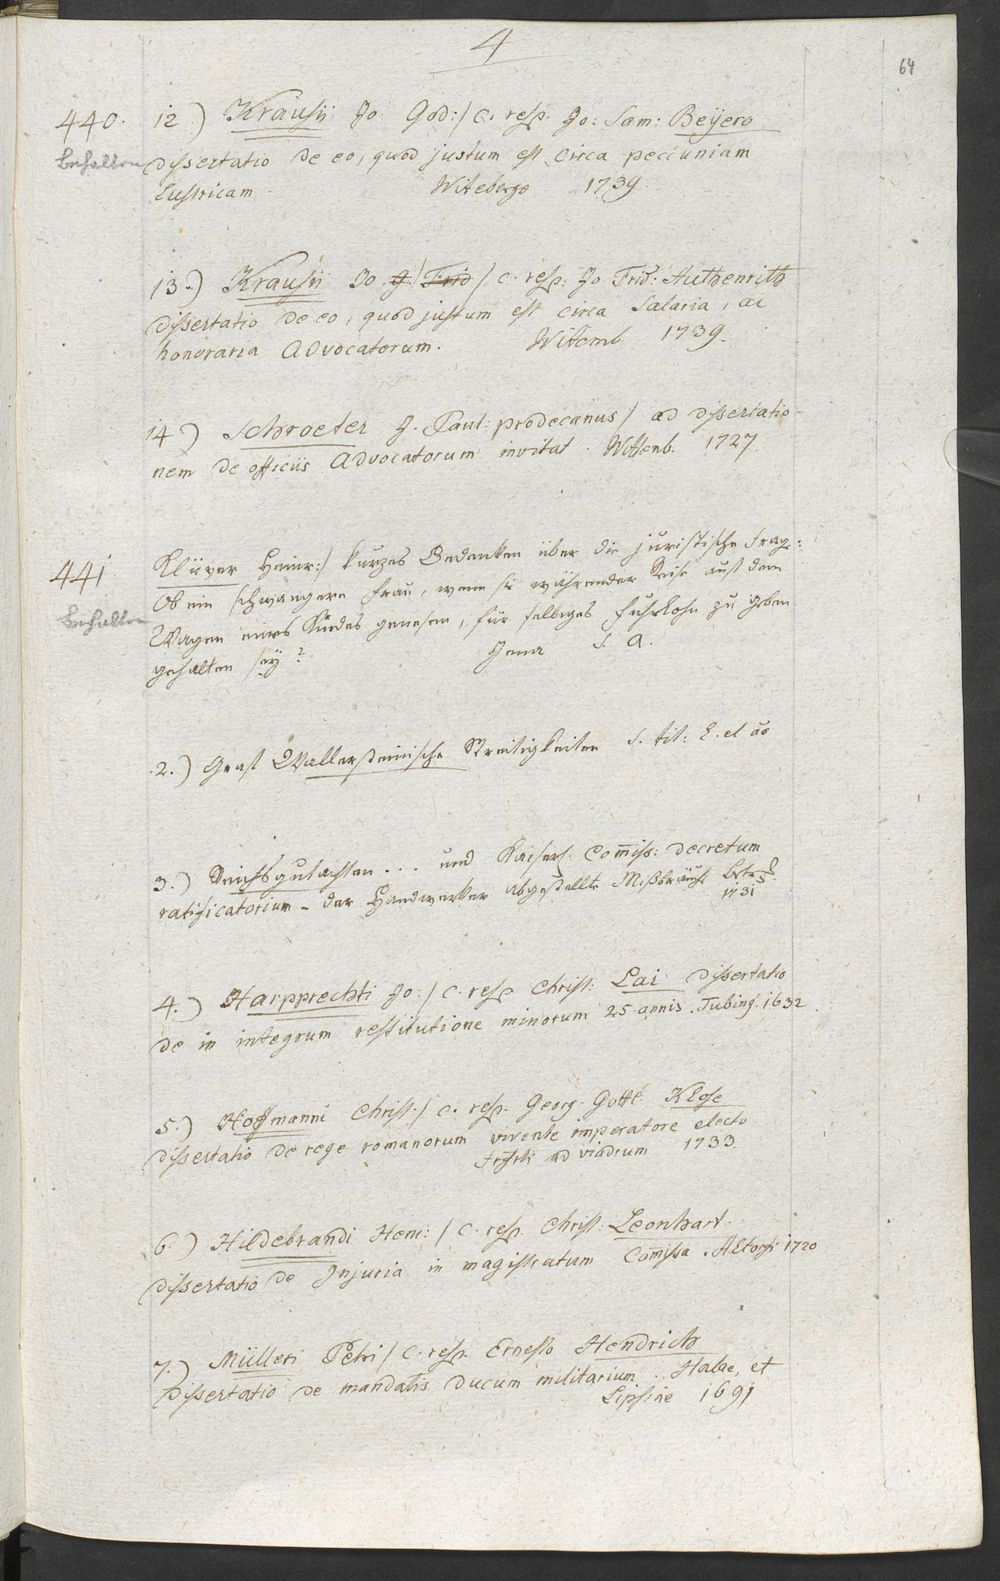 4
64
440. 12) Krausii Jo God:/ c. resp. Jo: Sam: Beÿero
behalten dissertatio de eo, quod justum est circa pecuniam
lustricam. Witebergo 1739.
13.) Krausii Jo. g. Frid / c. resp. Jo Frid: Authenrith
dissertatio de eo, quod justum est circa Salaria, ac
honoraria Advocatorum. Witemb 1739.
14) Schroeter J. Paul: prodecanus / ad dissertatio-
nem de officiis Advocatorum invitat. Wittenb. 1727.
441 Klüver Heinr:/ kurzes Bedenken über die juristische Frag:
Ob ein schwangere Frau, wenn sie während der Reise auf dem
behalten Wagen eines Kindes genesen, für selbiges Fuhrlohn zu geben
gehalten seÿ? Jena s. a.
2.) Graf Wallersteinische Streitigkeiten s. tit: l. et ao
3.) Reichsgutachten ... und Kaiserl. Com̄iss: decretum
ratificatorium - der Handwerker abgestellte Mißbräuch betref
1731
4.) Harpprechti Jo:/ c. resp Christ: Lai dissertatio
de in integrum restitutione minorum 25 annis. Tubing. 1632
5.) Hoffmanni Christ:/ c. resp. Georg. Gottl Klose
dissertatio de rege romanorum vivente imperatore electo
Frfrti ad viadrum 1733.
6.) Hildebrandi Henr:/ c. resp. Christ: Leonhart.
dissertatio de Injuria in magistratum Com̄issa. Altorfi 1720
7.) Mülleri Petri/ c. resp. Ernesto Hendrich
Dissertatio de mandatis Ducum militarium.. Halae, et
Lipsiae 1691